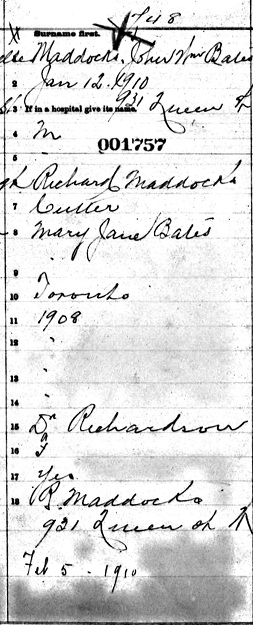 Feb 8
Surname first.
1 Maddocks, John Wm Bates
2 Jan 12. 1910
931 Queen St
3 If in a hospital give its name.
4 M
001757
5
6 Richard Maddocks
7 Cutter
8 Mary Jane Bates
9
10 Toronto
11 1908
12 "
13 "
14 "
15 Dr Richardson
16
17 Yes
18 R. Maddocks
931 Queen St
Feb 5 - 1910